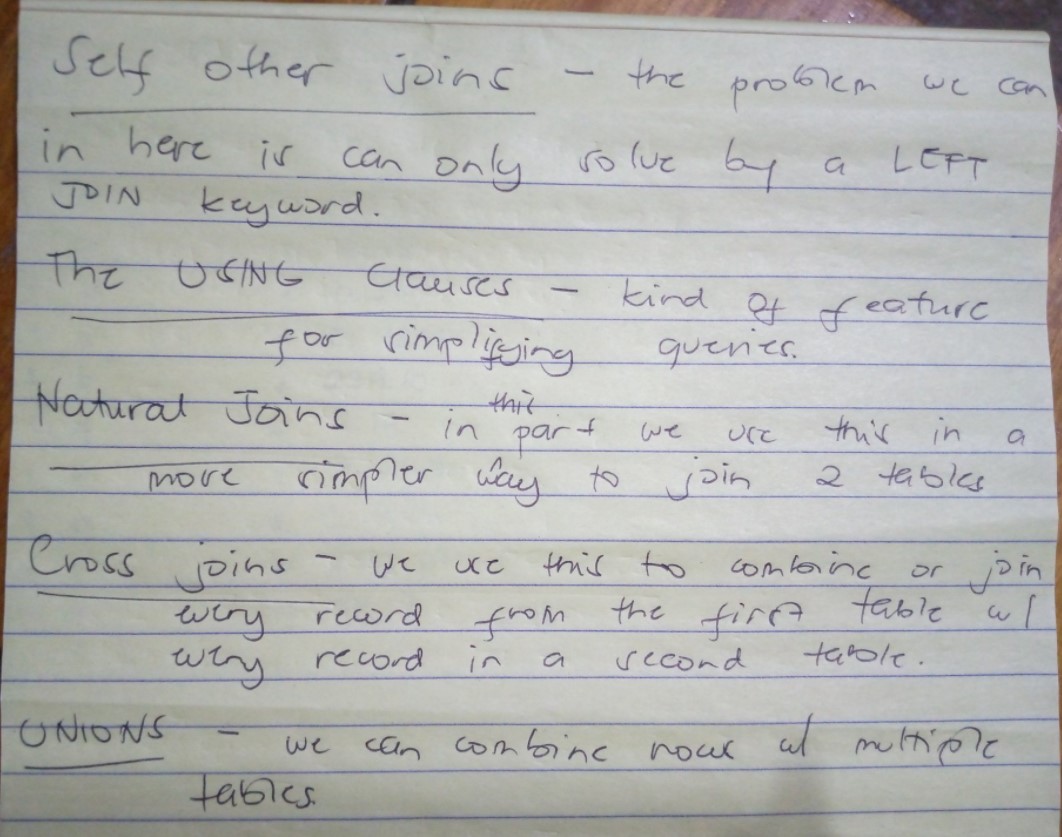 Self other joins - the problem we can
in here is can only solve by a LEFT
JOIN keyword.
The USING Clauses - kind of feature
for simplifying queries.
Natural Joins - in this part we use this in a
more simpler way to join 2 tables
Cross joins - we use this to combine or join
every record from the first table w/
every record in a second table.
UNIONS - we can combine rows w/ multiple
tables.